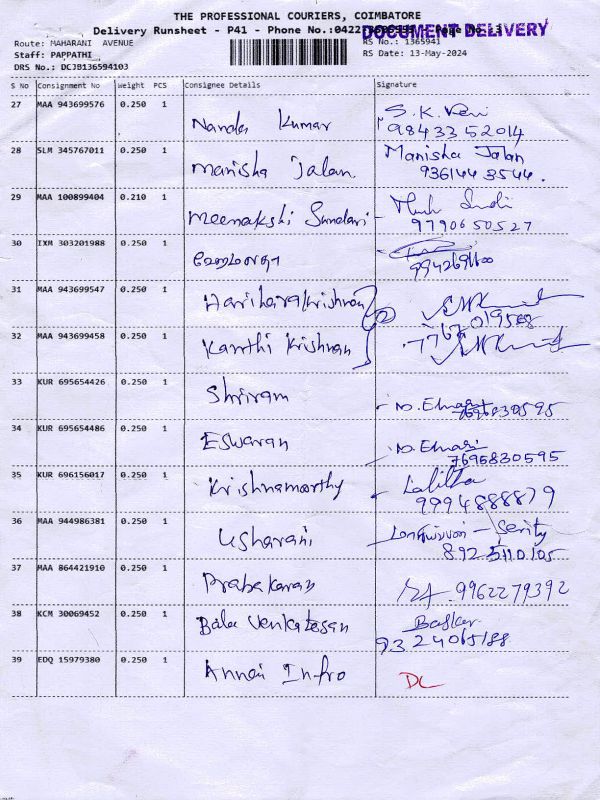 THE PROFESSIONAL COURIERS, COIMBATORE
Delivery Runsheet - P41 - Phone No.:0422
DOCUMENT DELIVERY
Route: MAHARANI AVENUE
RS No.: 1365941
Staff: PAPPATHI
RS Date: 13-May-2024
DRS No.: DCJB136594103
S No Consignment No Weight PCS Consignee Details Signature
27 MAA 943699576 0.250 1 Nanda Kumar S.K.
98433 52014
28 SLM 345767011 0.250 1 Manisha Jalan Manisha Jalan
936144 3544.
29 MAA 100899404 0.210 1 Meenakshi Sundari
9790650527
30 IXM 303201988 0.250 1
31 MAA 943699547 0.250 1 Harihara Krishnan
7767019568
32 MAA 943699458 0.250 1 Kanthi Krishnan
33 KUR 695654426 0.250 1 Shriram
7695830595
34 KUR 695654486 0.250 1 Eswaran
7695830595
35 KUR 696156017 0.250 1 Krishnamoorthy Lalitha
9994888879
36 MAA 944986381 0.250 1 Usharani
8925110105
37 MAA 864421910 0.250 1 Prabakaran 9962279392
38 KCM 30069452 0.250 1 Bala Venkatesan Baskar
9324065188
39 EDQ 15979380 0.250 1 Annai Infro DL